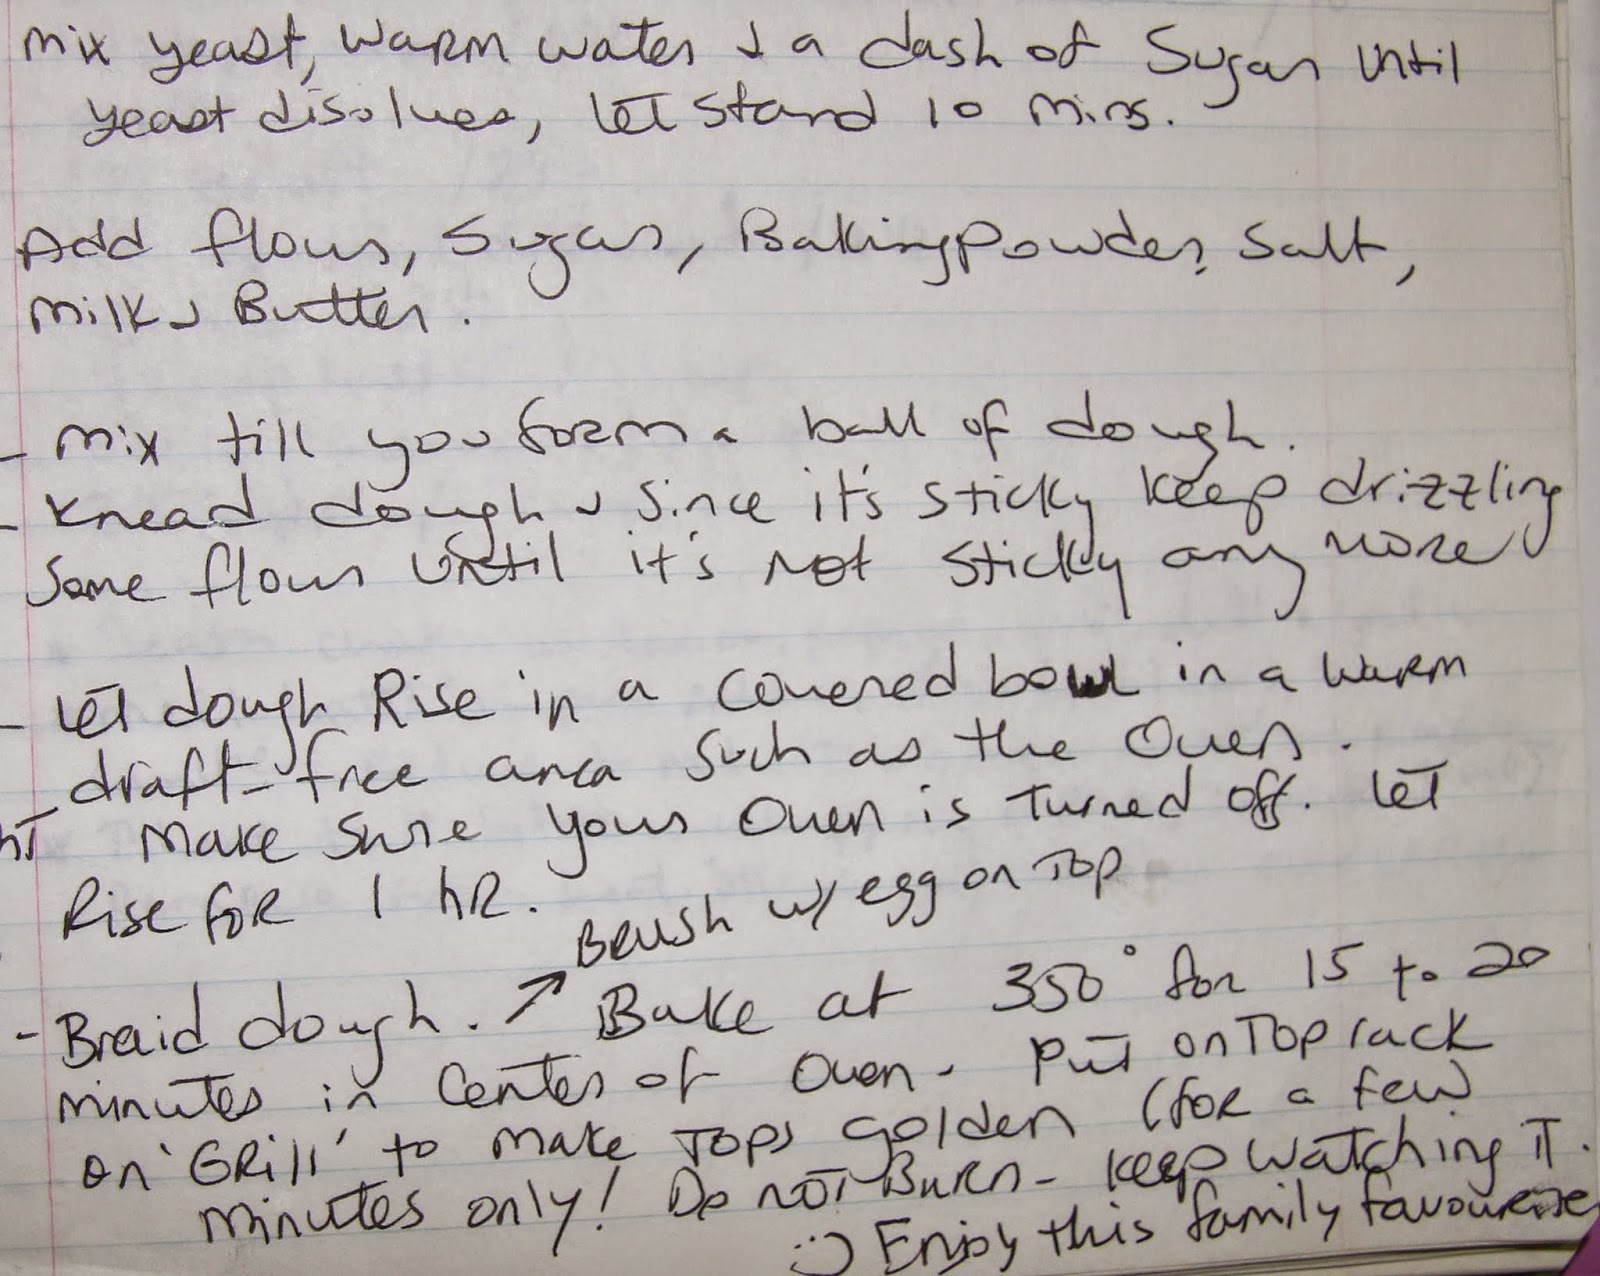 Mix yeast, warm water & a dash of Sugar until
yeast disolves, let stand 10 mins.
Add flour, Sugar, Baking Powder, Salt,
Milk & Butter.
- Mix till you form a ball of dough.
- Knead dough & Since it's sticky keep drizzling
Some flour until it's not sticky any more
- Let dough Rise in a covered bowl in a warm
draft-free area such as the Oven.
- Make sure your Oven is turned off. Let
Rise for 1 hr.
Brush w/ egg on top
- Braid dough. ↗ Bake at 350° for 15 to 20
minutes in Center of Oven. Put on Top rack
on 'Grill' to make Tops golden (for a few
minutes only! Do not Burn - keep watching it.
:) Enjoy this family favourite